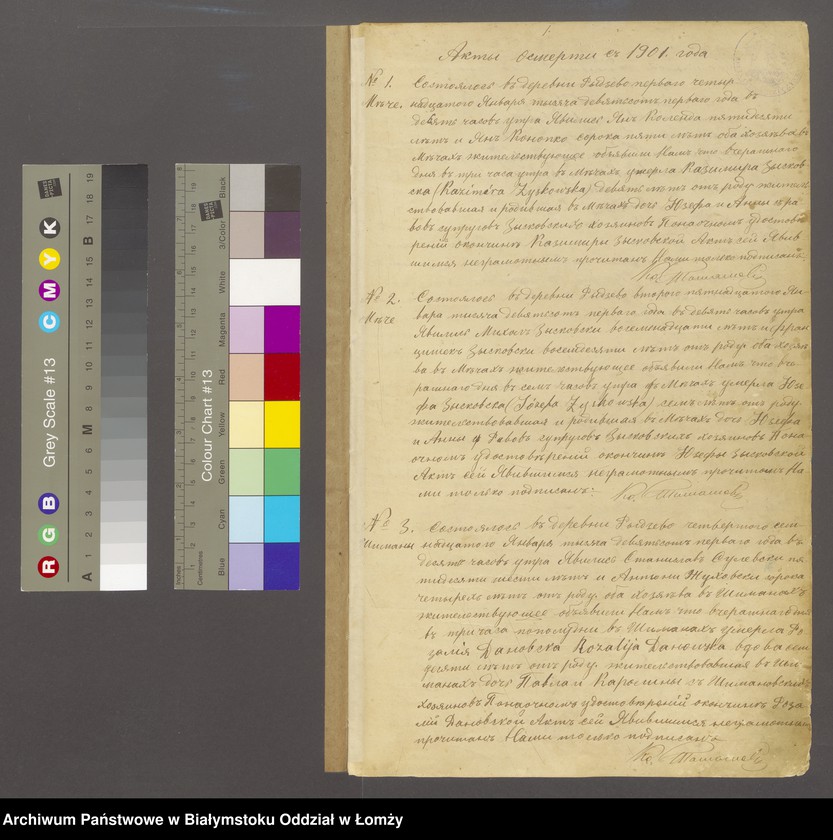 Акты осмерти съ 1901. года
№ 1.
Мѣче.
Состоялось въ деревни Рыдзево перваго четыр
надцатого Января тысяча девятсотъ перваго года въ
девять часовъ утра Явились Янъ Колейда пятидесяти
лѣтъ и Янъ Конопко сорока пяти лѣтъ оба хозяева въ
Мѣчахъ жительствующые объявили Намъ что вчерашного
дня въ три часа утра въ Мѣчахъ умерла Казимира Зысков
ска (Kazimiera Zyskowska) девять лѣтъ отъ роду жител
ствовавшая и родившая въ Мѣчахъ дочь Юзефа и Анны
супруговъ Зысковскихъ хозяиновъ Понаочномъ удостове
реніи окончинѣ Казимиры Зысковской Актъ сей Явив
шимся неграмотнымъ прочитанъ Нами только подписанъ.
Кс.
№ 2.
Мѣче
Состоялось въ деревни Рыдзево второго пятнадцатого Ян
вара тысяча девятсотъ перваго года въ девять часовъ утра
Явились Михалъ Зысковски восемнадцати лѣтъ и Фран
цишекъ Зысковски восемдесяти лѣтъ отъ роду оба хозяе
ва въ Мѣчахъ жительствующее объявили Намъ что вче
рашнаго дня въ семъ часовъ утра въ Мѣчахъ умерла Юзе
фа Зысковска (Józefa Zyskowska) семъ лѣтъ отъ роду
жительствовавшая и родившая въ Мѣчахъ дочь Юзефа
и Анны супруговъ Зысковскихъ хозяиновъ Пона
очномъ удостовѣреній окончинѣ Юзефы Зысковской
Актъ сей Явившимся неграмотнымъ прочитанъ На
ми только подписанъ.
Кс.
№ 3.
Шиманы
Состоялось въ деревни Рыдзево четвертого сем
надцатого Января тысяча девятсотъ перваго года въ
десять часовъ утра Явились Станиславъ Сулевски пя
тидесяти шести лѣтъ и Антони Жуховски сорока
четырехъ лѣтъ отъ роду оба хозяева въ Шиманахъ
жительствующее объявили Намъ что вчерашнаго дня
въ три часа пополудни въ Шиманахъ умерла Ро
залія Дановска Rozalija Danowska вдова
десяти лѣтъ отъ роду жительствовавшая въ Ши
манахъ дочь Павла и Каролины съ Шимановскихъ
хозяиновъ Понаочномъ удостоверѣній окончинѣ Роза
лій Дановской Актъ сей Явившимся неграмотнымъ
прочитанъ Нами только подписанъ
Кс.
Grey Scale #13
R G B C M Y K
A 1 2 3 4 5 6 M 8 9 10 11 12 13 14 15 B 17 18 19
Colour Chart #13
Blue Cyan Green Yellow Red Magenta White 3/Color Black
Inches
Centimetres
Archiwum Państwowe w Białymstoku Oddział w Łomży